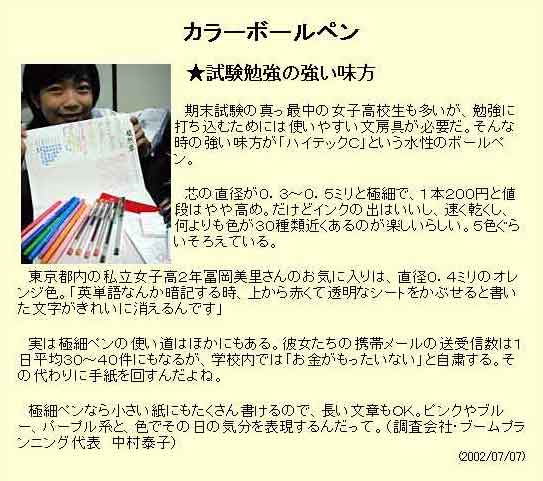 カラーボールペン
★試験勉強の強い味方
期末試験の真っ最中の女子高校生も多いが、勉強に
打ち込むためには使いやすい文房具が必要だ。そんな
時の強い味方が「ハイテックC」という水性のボールペ
ン。
芯の直径が0．3～0．5ミリと極細で、1本200円と値
段はやや高め。だけどインクの出はいいし、速く乾くし、
何よりも色が30種類近くあるのが楽しいらしい。5色ぐら
いそろえている。
東京都内の私立女子高2年冨岡美里さんのお気に入りは、直径0．4ミリのオレ
ンジ色。「英単語なんか暗記する時、上から赤くて透明なシートをかぶせると書い
た文字がきれいに消えるんです」
実は極細ペンの使い道はほかにもある。彼女たちの携帯メールの送受信数は1
日平均30～40件にもなるが、学校内では「お金がもったいない」と自粛する。そ
の代わりに手紙を回すんだよね。
極細ペンなら小さい紙にもたくさん書けるので、長い文章もOK。ピンクやブル
ー、パープル系と、色でその日の気分を表現するんだって。（調査会社・ブームプラ
ンニング代表　中村泰子）
(2002/07/07)